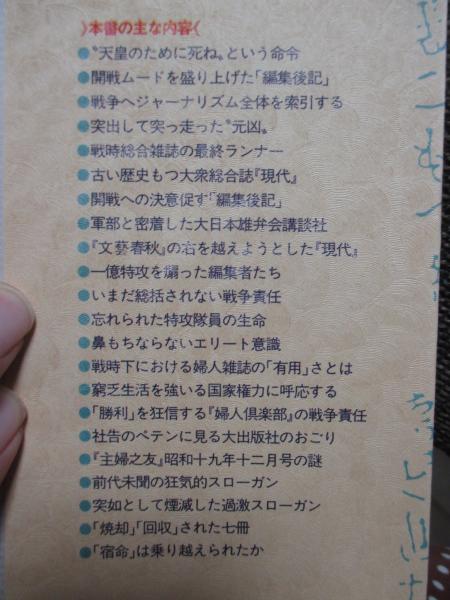 》本書の主な内容《
●〝天皇のために死ね〟という命令
●開戦ムードを盛り上げた「編集後記」
●戦争へジャーナリズム全体を索引する
●突出して突っ走った〝元凶〟
●戦時総合雑誌の最終ランナー
●古い歴史もつ大衆総合誌『現代』
●開戦への決意促す「編集後記」
●軍部と密着した大日本雄弁会講談社
●『文藝春秋』の右を越えようとした『現代』
●一億特攻を煽った編集者たち
●いまだ総括されない戦争責任
●忘れられた特攻隊員の生命
●鼻もちならないエリート意識
●戦時下における婦人雑誌の「有用」さとは
●窮乏生活を強いる国家権力に呼応する
●「勝利」を狂信する『婦人倶楽部』の戦争責任
●社告のペテンに見る大出版社のおごり
●『主婦之友』昭和十九年十二月号の謎
●前代未聞の狂気的スローガン
●突如として煙滅した過激スローガン
●「焼却」「回収」された七冊
●「宿命」は乗り越えられたか